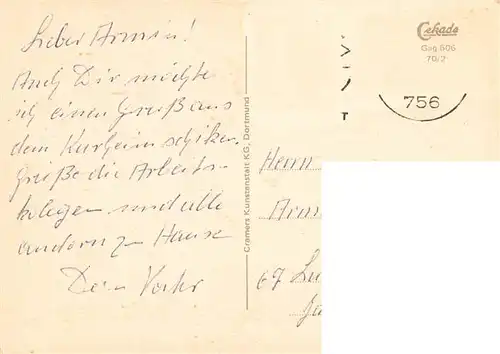 Lieber Armin!
Auch Dir möchte
ich einen Gruß aus
dem Kurheim schiken.
Grüße die Arbeits-
kolegen und alle
andern zu Hause
Dein Vater
Cramers Kunstanstalt KG, Dortmund
Cekade
Gag 606
70/2
756
Herrn
Armi
67 Lu